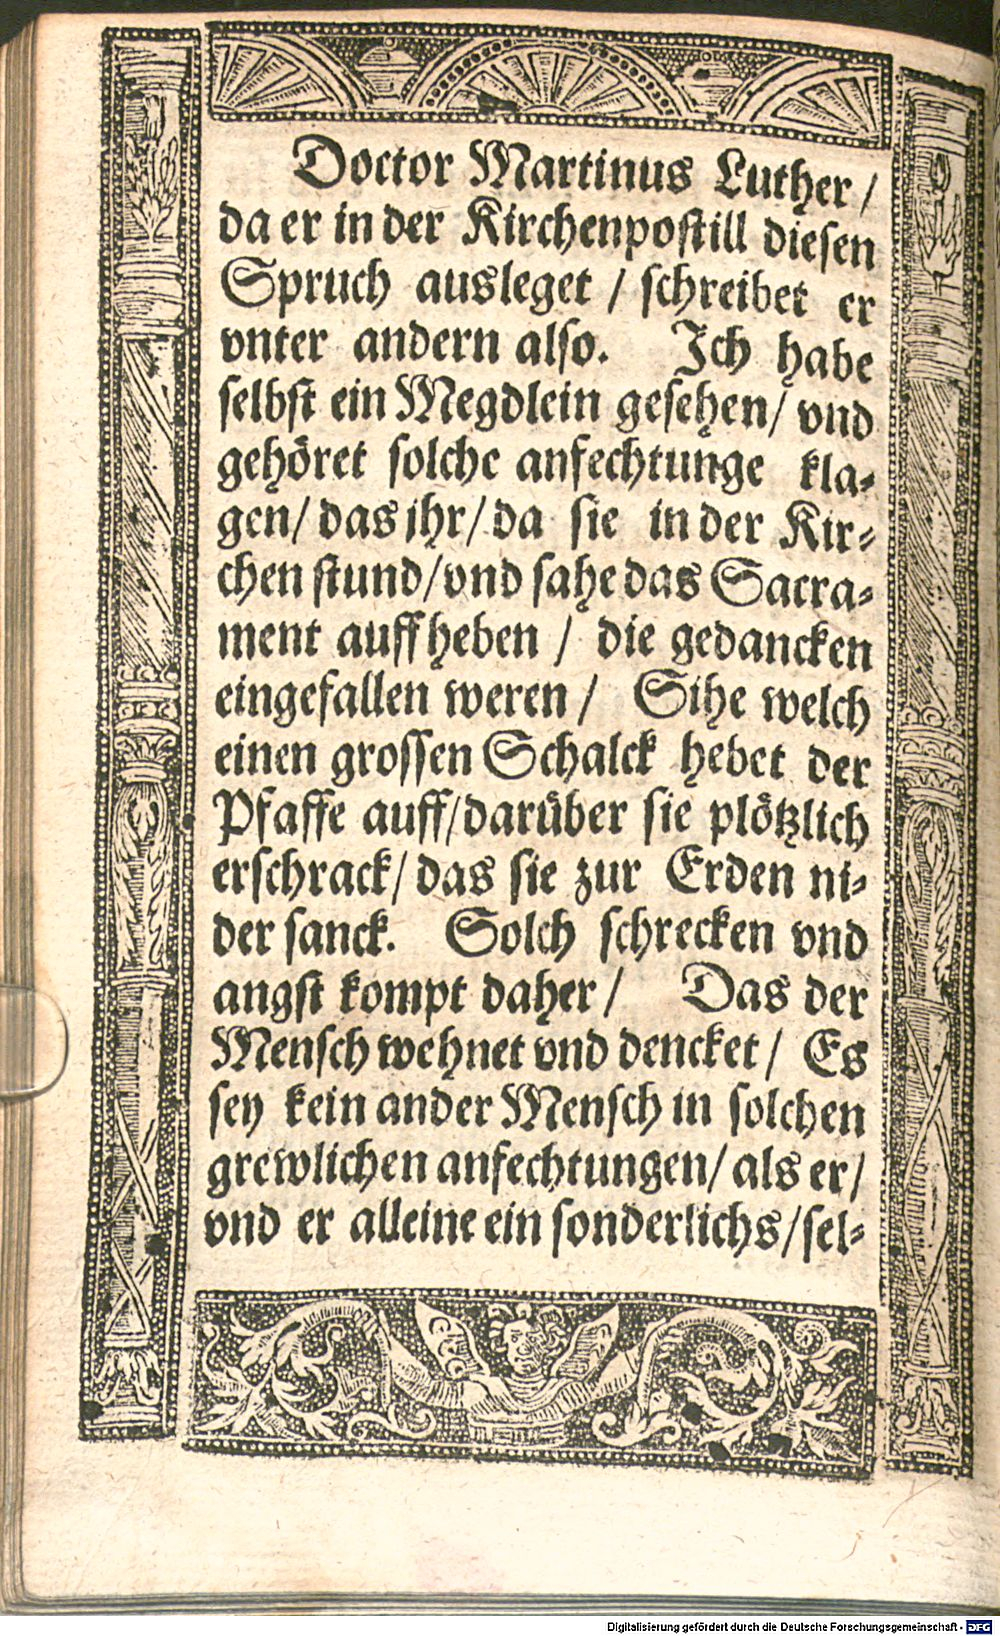 Doctor Martinus Luther /
da er in der Kirchenpostill diesen
Spruch ausleget / schreibet er
vnter andern also. Ich habe
selbst ein Megdlein gesehen/ vnd
gehöret solche anfechtunge kla-
gen/ das jhr/ da sie in der Kir-
chen stund/vnd sahe das Sacra-
ment auffheben / die gedancken
eingefallen weren / Sihe welch
einen grossen Schalck hebet der
Pfaffe auff/darüber sie plötzlich
erschrack/ das sie zur Erden ni-
der sanck. Solch schrecken vnd
angst kompt daher / Das der
Mensch wehnet vnd dencket / Es
sey kein ander Mensch in solchen
grewlichen anfechtungen/ als er/
vnd er alleine ein sonderlichs/sel-
Digitalisierung gefördert durch die Deutsche Forschungsgemeinschaft - DFG